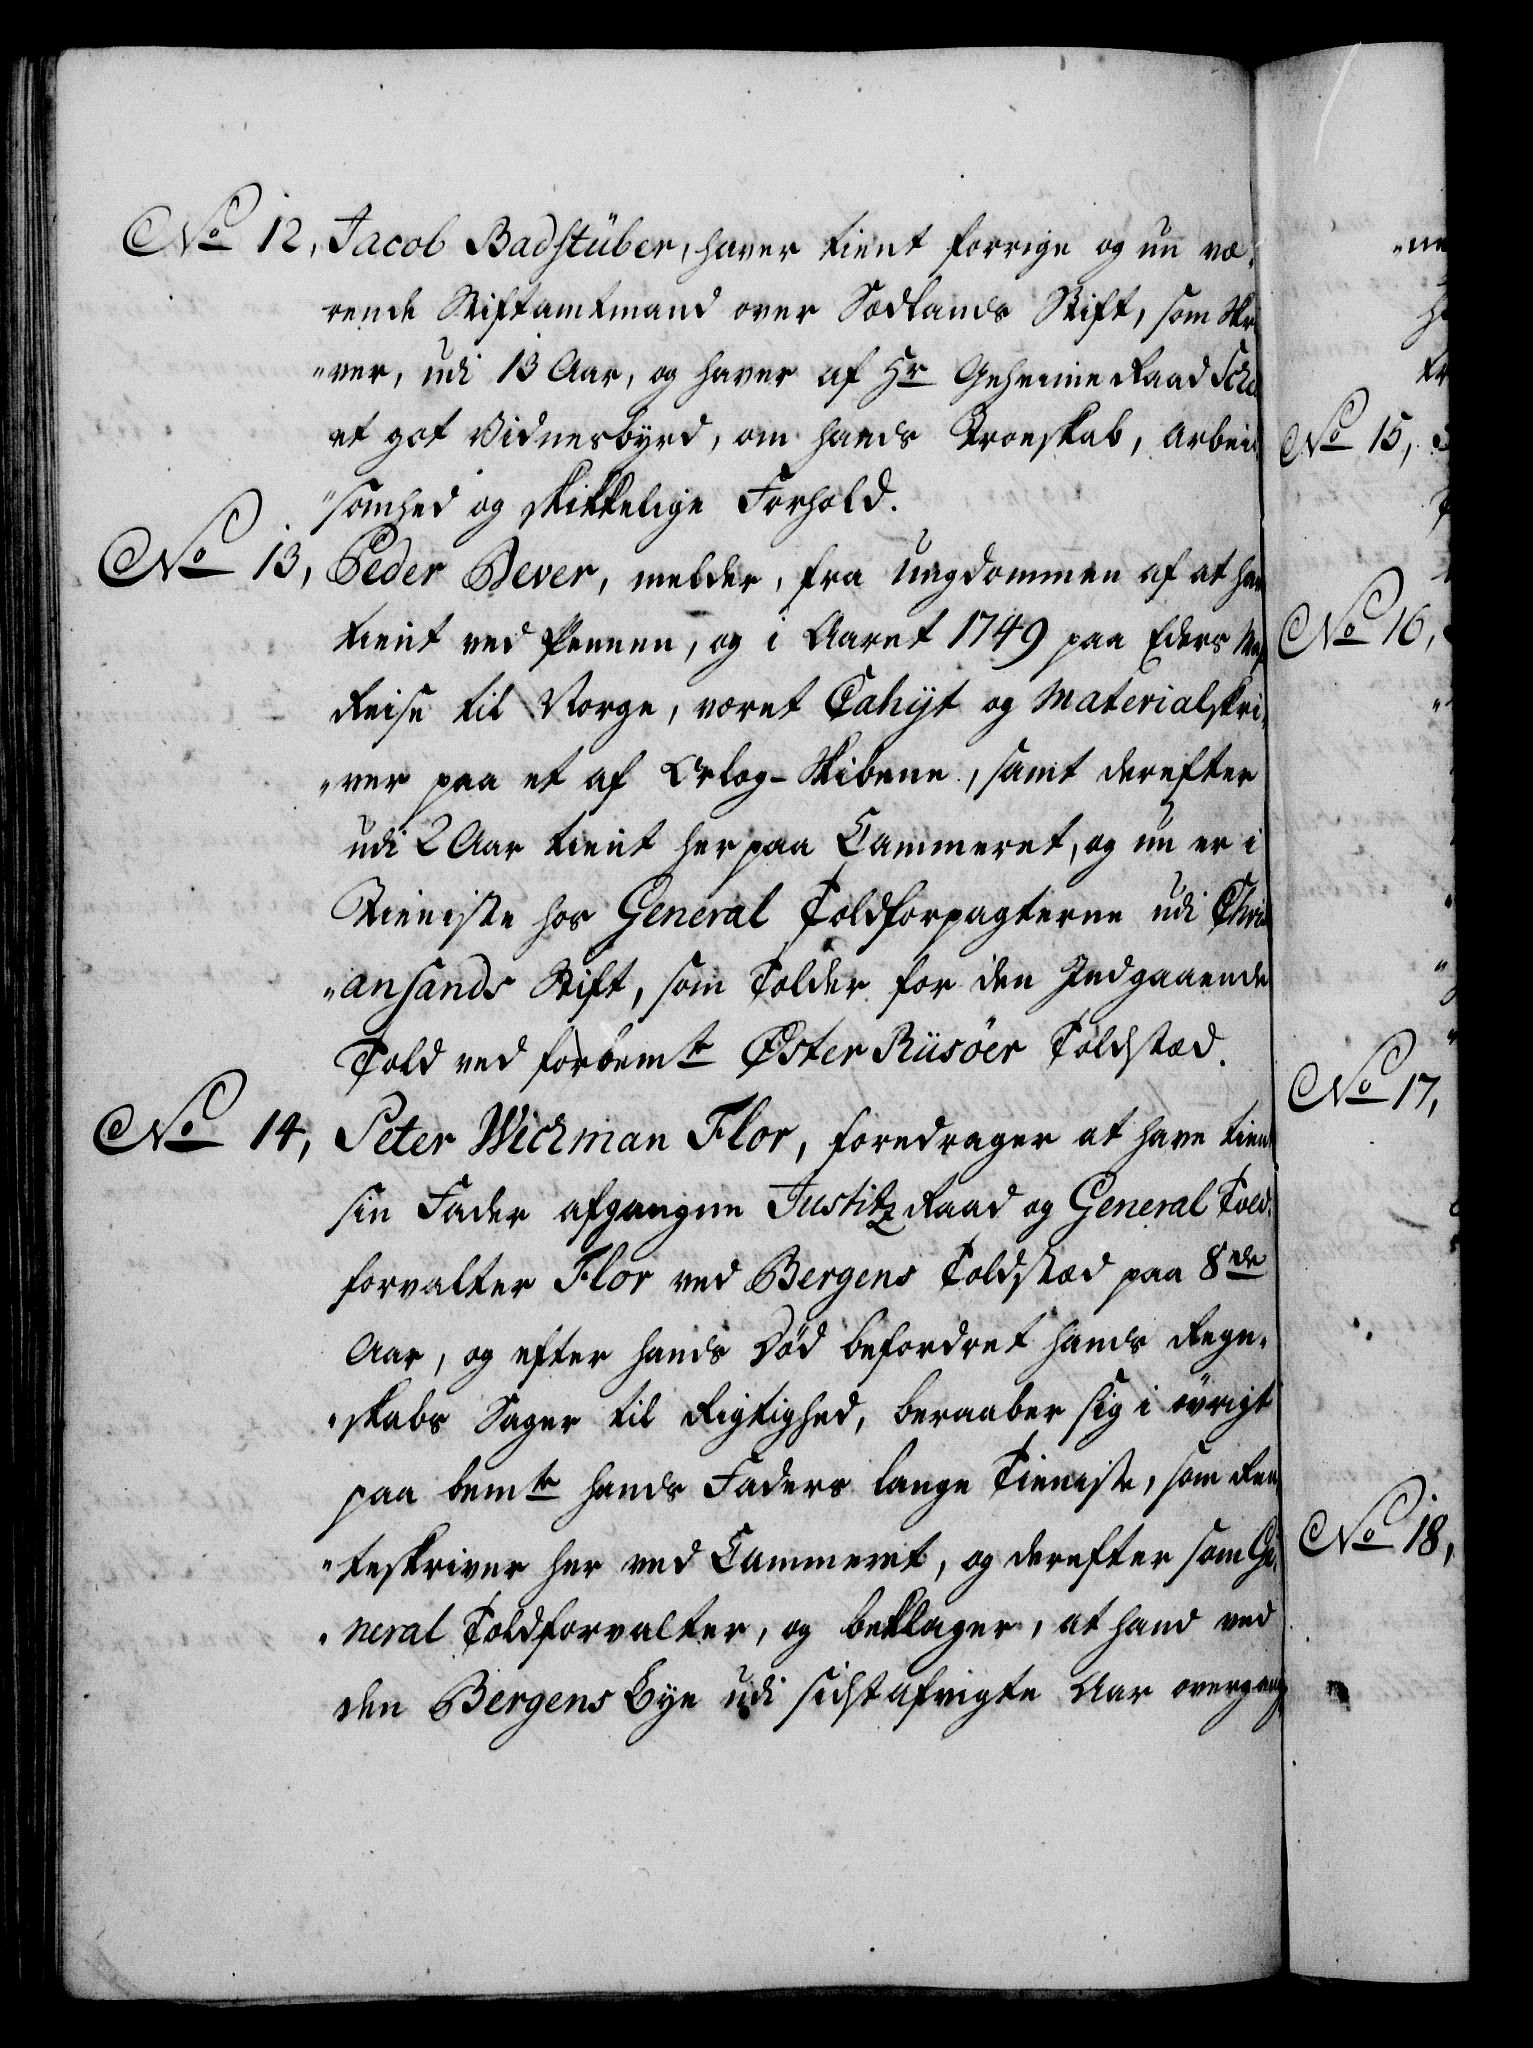 No 12, Jacob Badstüber, haver tient forrige og nu væ-
rende Stiftamtmand over Siællands Stift, som Skri
"ver, udi 13 Aar, og haver af Hr Geheime Raad
et got Vidnesbyrd, om hands Troeskab, Arbeid
"somhed og skikkelige Forhold.
No 13, Peder Bever, melder, fra Ungdommen af at have
tient ved Pennen, og i Aaret 1749 paa Eders May
Reise til Norge, været Cahyt og Materialskri-
"ver paa et af Orlog-Skibene, samt derefter
udi 2 Aar tient her paa Cammeret, og nu er i
Tieniste hos General Toldforpagterne udi Christi
"ansands Stift, som Tolder for den Indgaaende
Told ved forbemte Øster Riisöer Toldstæd.
No 14, Peter Wichman Flor, foredrager at have tient
sin Fader afgangne Justitz Raad og General Told-
forvalter Flor ved Bergens Toldstæd paa 8de
Aar, og efter hands Död befordret hands Regn-
"skabs Sager til Rigtighed, beraaber sig i övrigt
paa bemte hands Faders lange Tieniste, som Ren
"teskriver her ved Cammeret, og derefter som Ge-
"neral Toldforvalter, og beklager, at hand ved
den Bergens Bye udi sidstafvigte Aar overgang
No 15,
No 16,
No 17,
No 18,